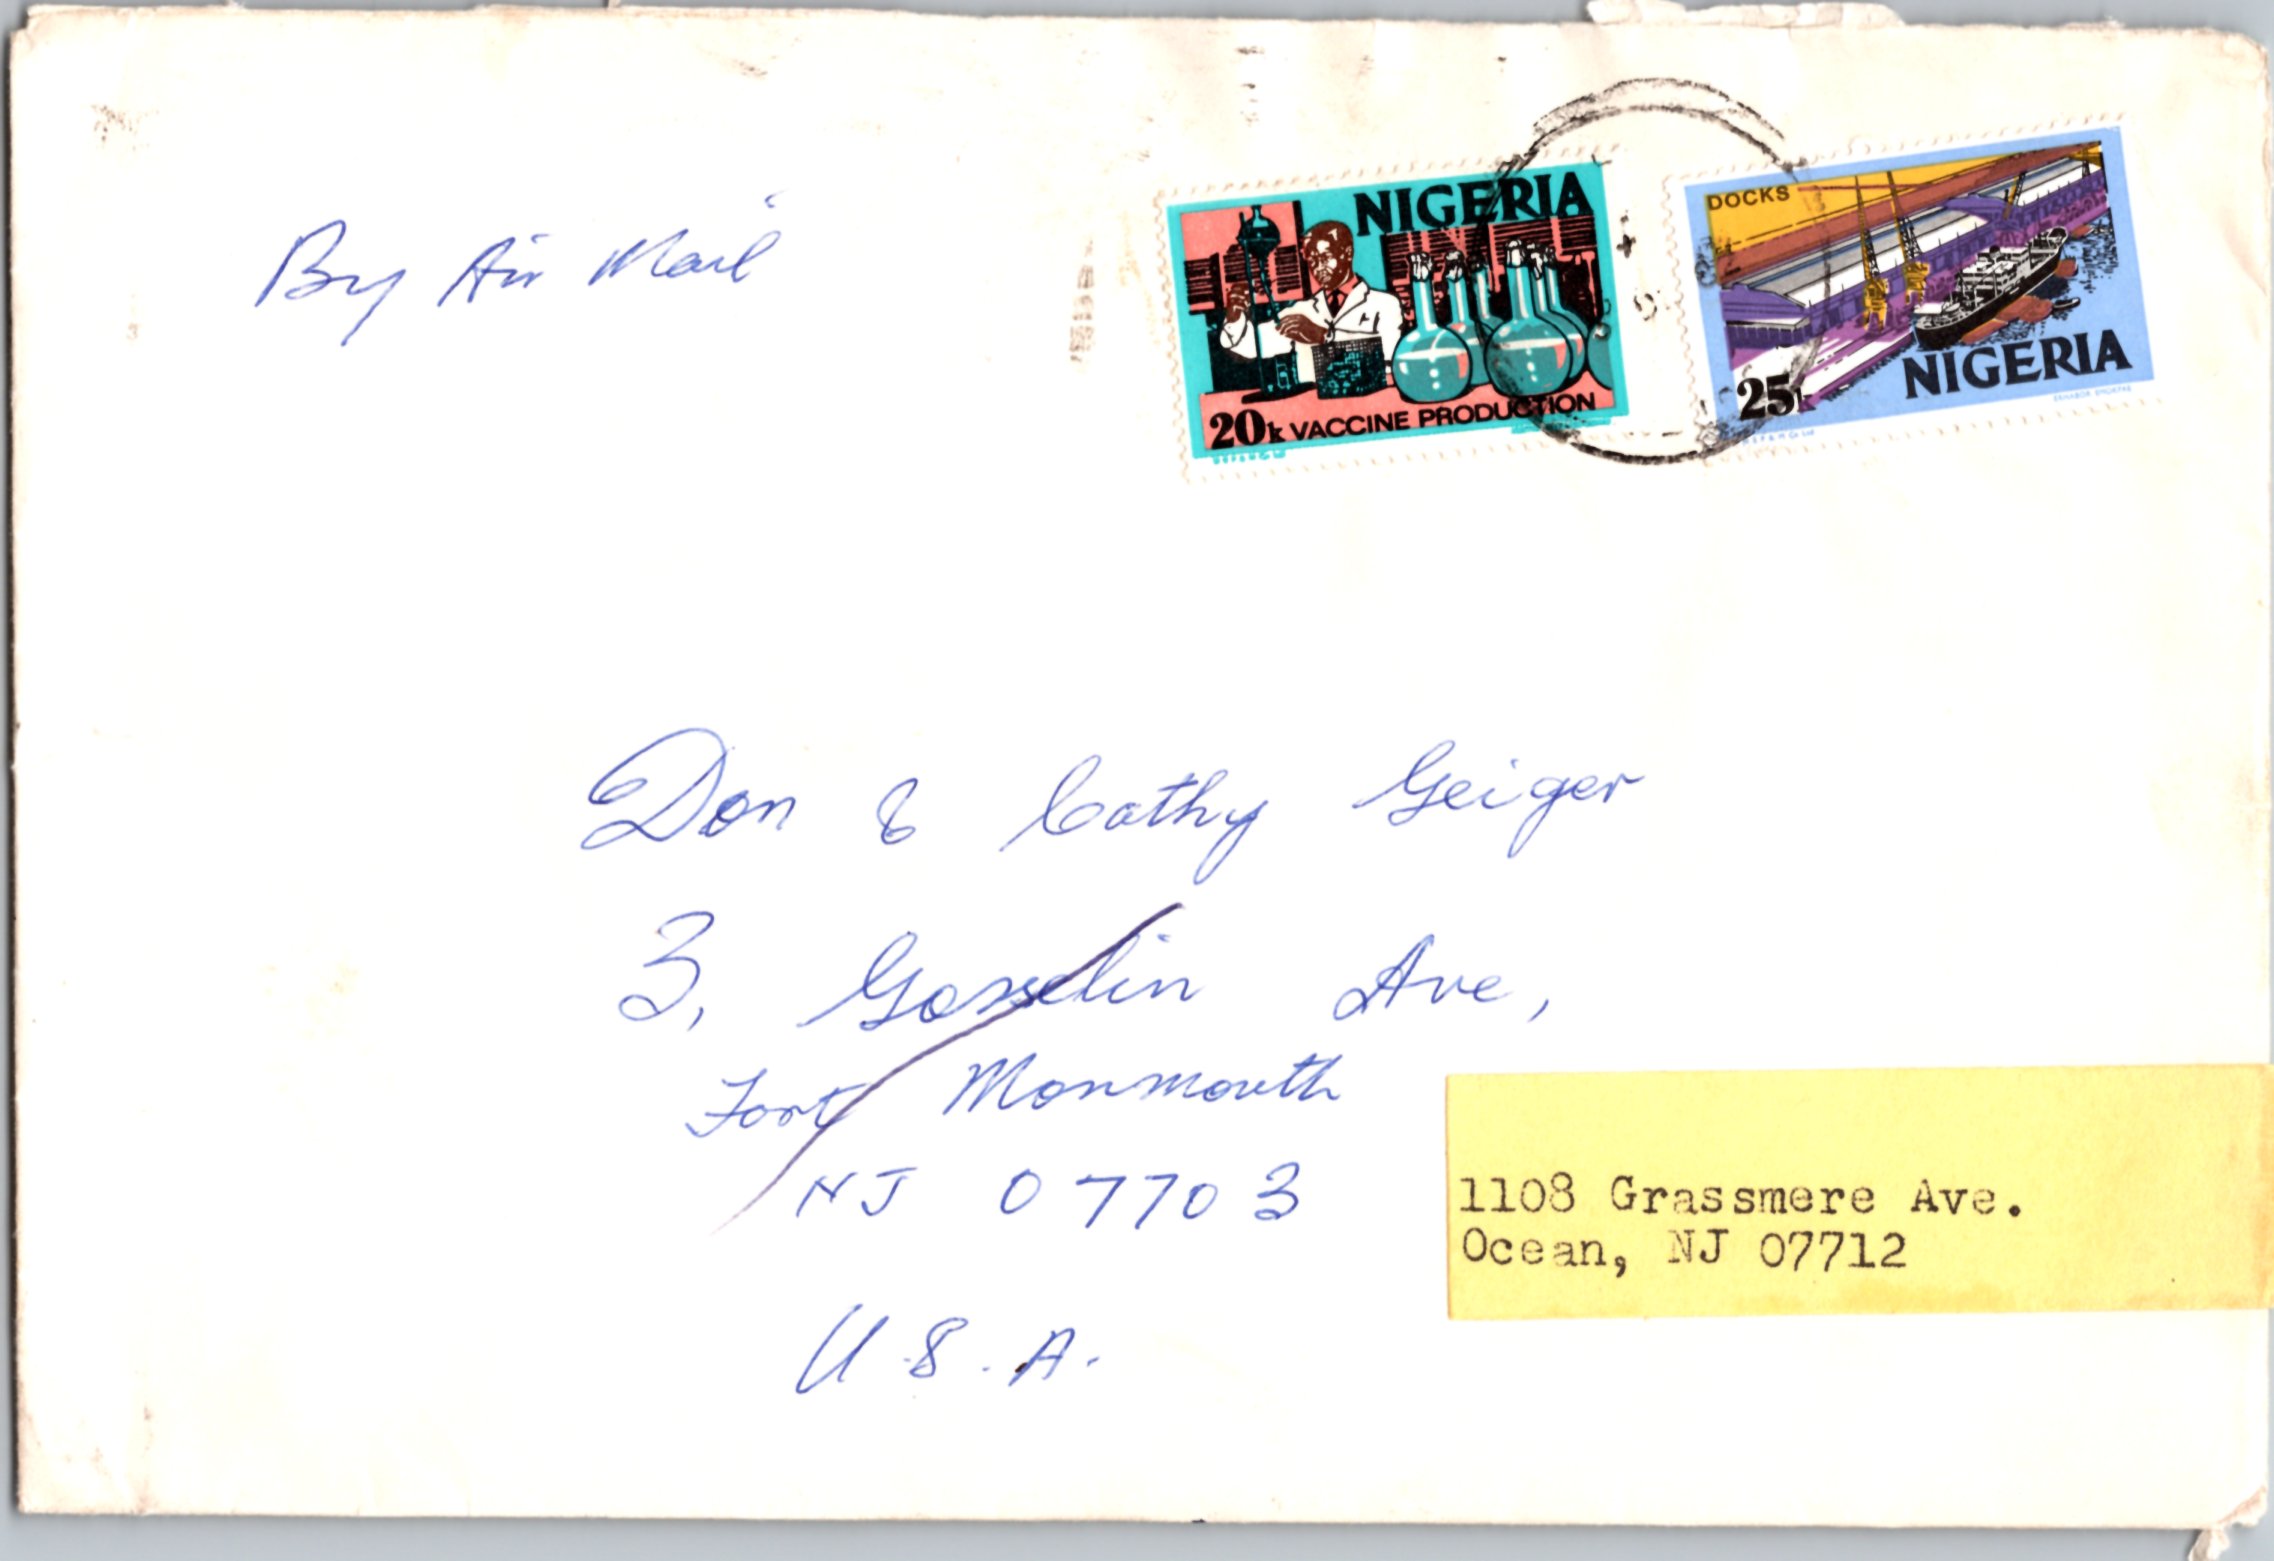 By Air Mail
NIGERIA
20k VACCINE PRODUCTION
DOCKS
25k
NIGERIA
Don & Cathy Geiger
3, Gosselin Ave,
Fort Monmouth
NJ 07703
U.S.A.
1108 Grassmere Ave.
Ocean, NJ 07712